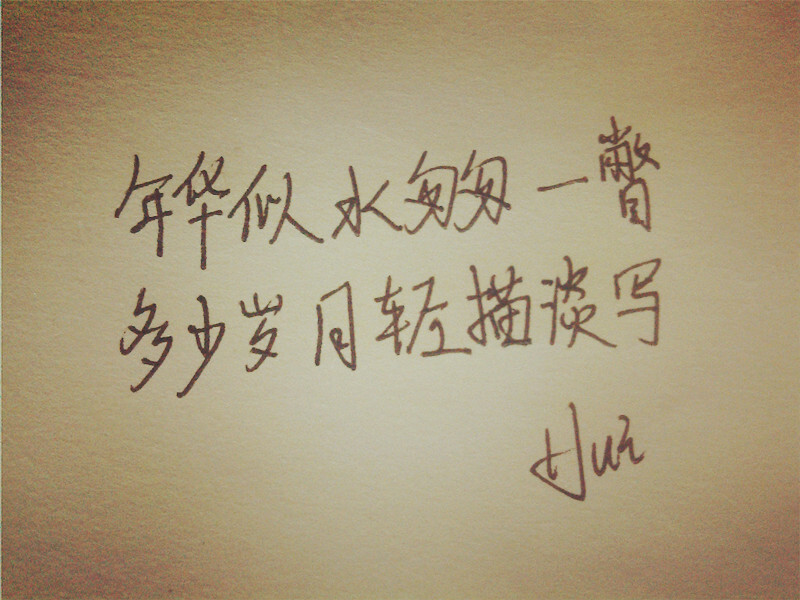 年华似水匆匆一瞥
多少岁月轻描淡写
Hui